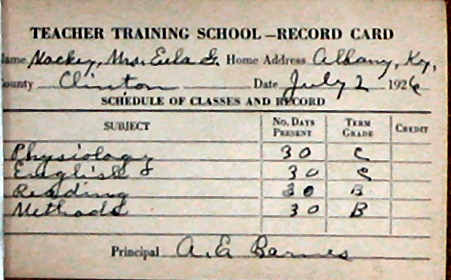 TEACHER TRAINING SCHOOL — RECORD CARD
Name Mackey, Mrs. Eula G. Home Address Albany, Ky.
County Clinton Date July 2 1926
SCHEDULE OF CLASSES AND RECORD
SUBJECT No. DAYS PRESENT TERM GRADE CREDIT
Physiology 30 C
English 30 C
Reading 30 B
Methods 30 B
Principal A. E. Barnes